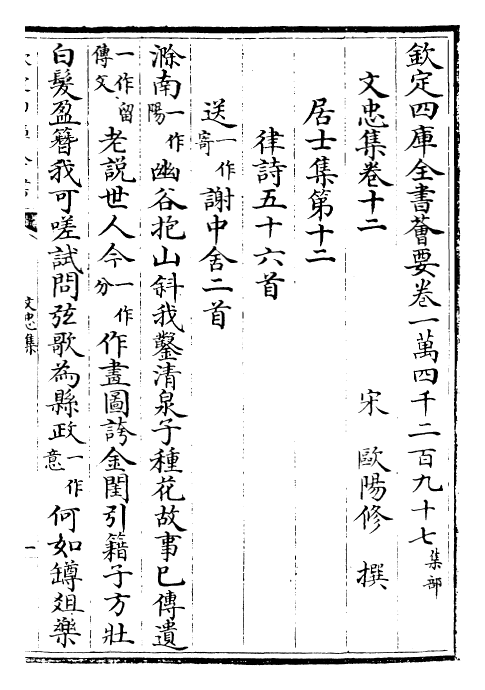 欽定四庫全書薈要卷一萬四千二百九十七 集部
文忠集卷十二 宋 歐陽修 撰
居士集第十二
律詩五十六首
送一作寄謝中舍二首
滁南一作陽幽谷抱山斜我鑿清泉子種花故事已傳遺
一作留傳文老説世人今一作分作畫圖誇金閨引籍子方壯
白髮盈簪我可嗟試問弦歌為縣政一作意何如罇俎樂
文忠集
一